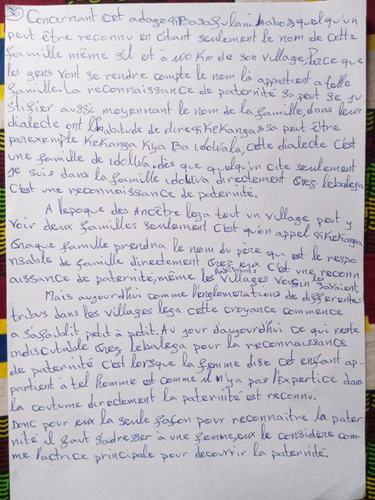 Concernant cet adage « Basa fulani babo » quelqu'un
peut être reconnu en citant seulement le nom de cette
famille même s'il et à 100 Km de son village. Parce que
les gens vont se rendre compte le nom là appartient a telle
famille. La reconnaissance de paternité sa peut se ju
stifier aussi moyennant le nom de la famille, dans leur
dialecte ont l'habitude de dire « Kekanga » sa peut être
par exemple Kekanga Kya Ba idolwala, cette dialecte c'est
une famille de idolwa. dès que quelqu'un cite seulement
je suis dans la famille idolwa directement chez lebalega
C'est une reconnaissance de paternité.
A l'epoque des Ancêtre lega tout un village peut y
Voir deux familles seulement C'est qu'on appel « Kikanga
chaque famille prendra le nom du pere qui est le respo
nsable de famille directement chez eux C'est une reconn
aissance de paternité, même les habitants Villages Voisin les savaient
Mais aujourd'hui comme l'englomérations de differentes
tribus dans les villages lega cette croyance commence
a s'afaiblit petit à petit. Au jour d'aujourd'hui ce qui reste
indiscutable chez lebalega pour la reconnaissance
de paternité c'est lorsque la femme dise cet enfant ap-
partient à tel homme et comme il n'y a pas l'expertice dans
la coutume directement la paternité est reconnu.
Donc pour eux la seule façon pour reconnaître la pater
nité il faut s'adresser à une femme, eux le considère com-
me l'actrice principale pour decouvrir la paternité.